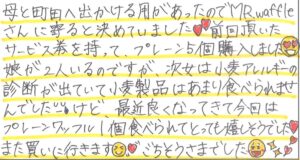 母と町田へ出かける用があったのでMR.waffle
さんに寄ると決めていました♥前回頂いた
サービス券を持って、プレーン5個購入しました
娘が2人いるのですが、次女は小麦アレルギーの
診断が出ていて小麦製品はあまり食べられませ
んでした…けど、最近良くなってきて今回は
プレーンワッフル1個食べられてとっても嬉しそうでした
また買いに行きます ♡ごちそうさまでした